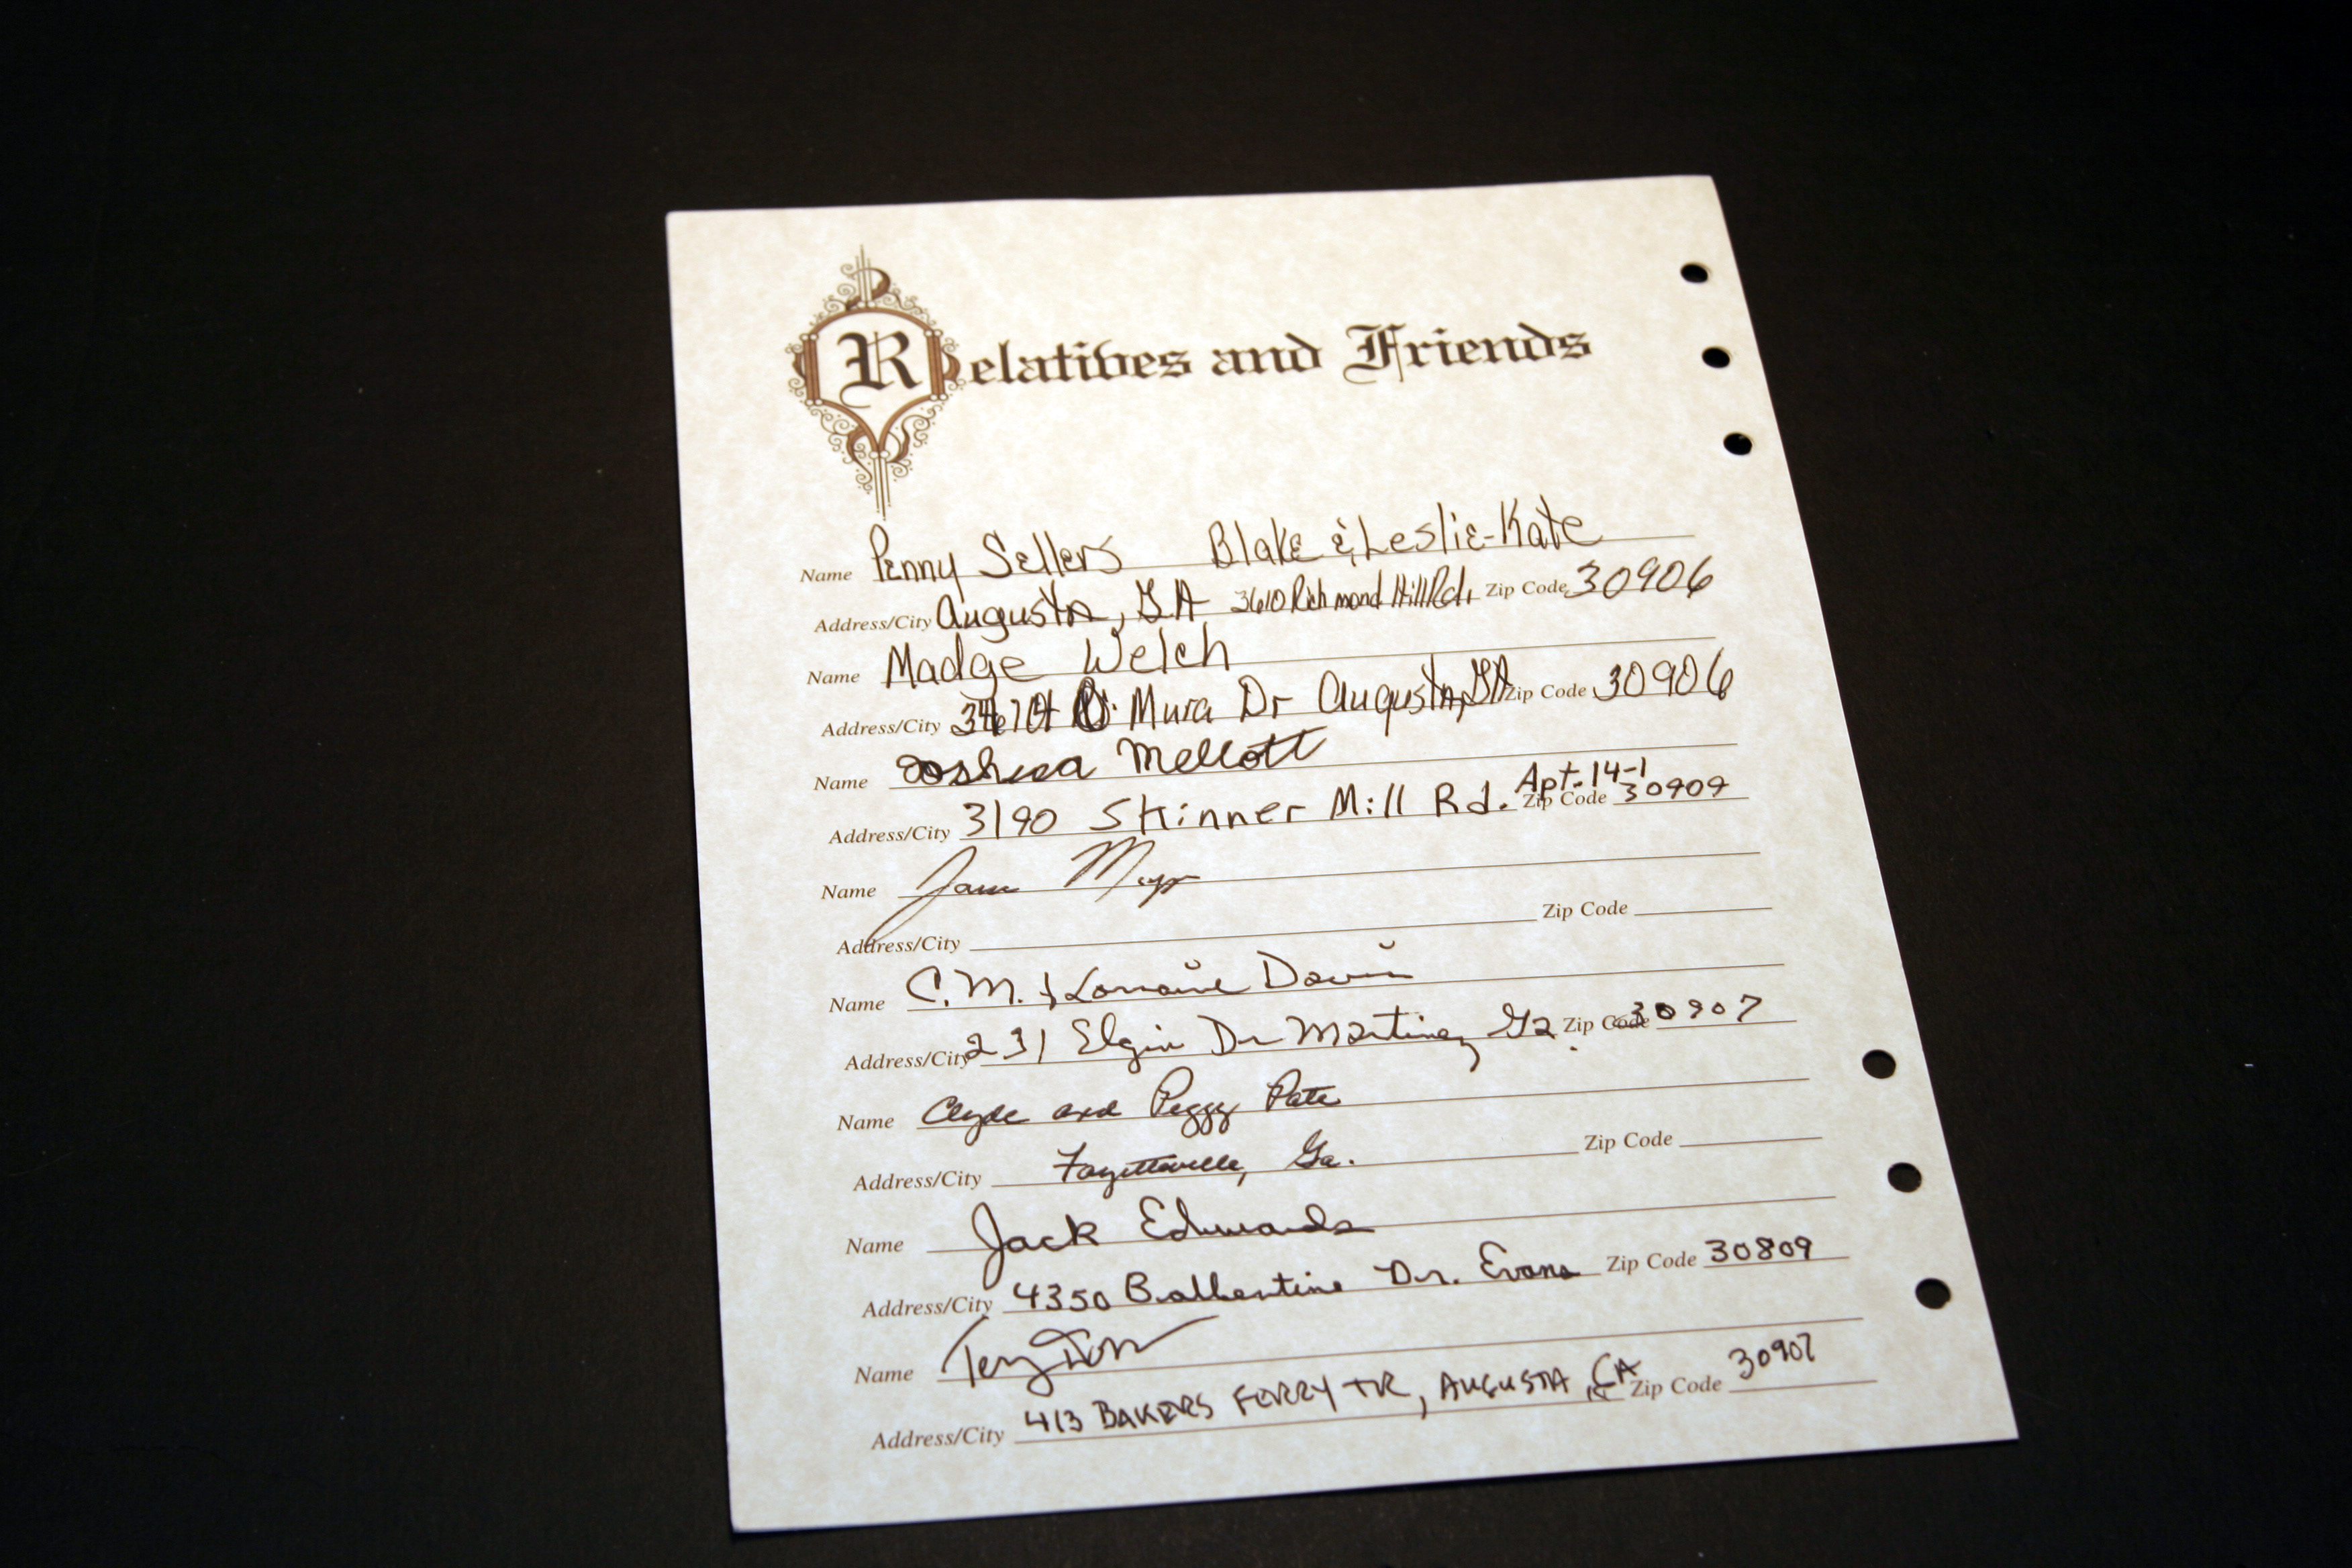 Relatives and Friends
Name Penny Sellers Blake & Leslie-Kate
Address/City Augusta, GA 3610 Richmond Hill Rd. Zip Code 30906
Name Madge Welch
Address/City Mura Dr Augusta, GA Zip Code 30906
Name Joshua Mellott
Apt. 14-1
Address/City 3190 Skinner Mill Rd. Zip Code 30909
Name
Address/City Zip Code
Name C.M. & Lorraine Davis
Address/City 231 Elgin Dr Martinez, Ga. Zip Code 30907
Name Clyde and Peggy Pate
Address/City Fayetteville, Ga. Zip Code
Name Jack Edwards
Address/City 4350 Ballentine Dr. Evans Zip Code 30809
Name Terry
Address/City 413 BAKERS FERRY TR, AUGUSTA, GA Zip Code 30907